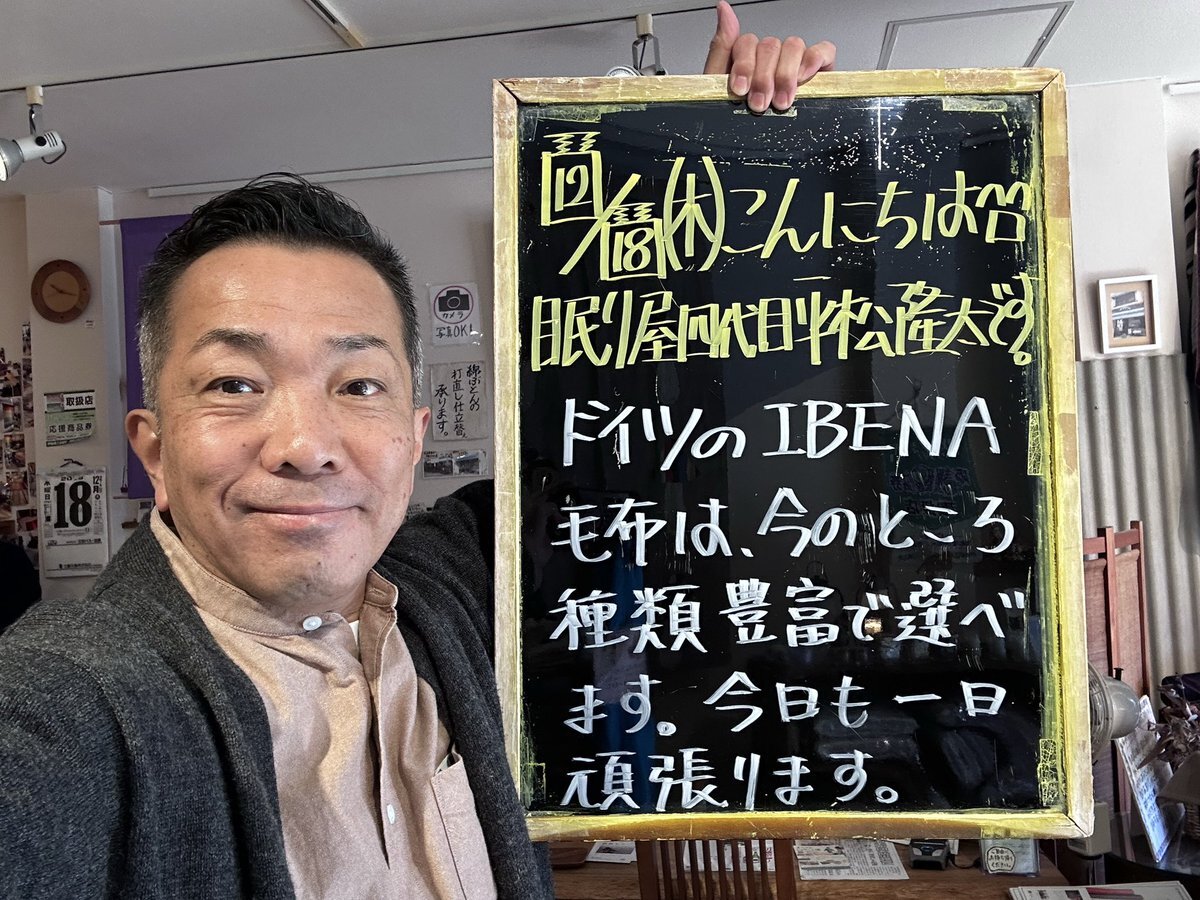 12/18(木)こんにちは
眠り屋四代目
ドイツのIBENA
毛布は、今のところ
種類豊富で選べ
ます。今日も一日
頑張ります。
カメラ
写真OK!
綿ふとんの
打直し仕立替え
承ります。
取扱店
応援商品券
12月
木曜日
18